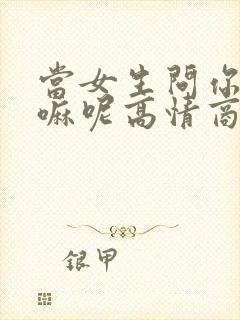 當女生問你
嘛呢高情商
銀甲